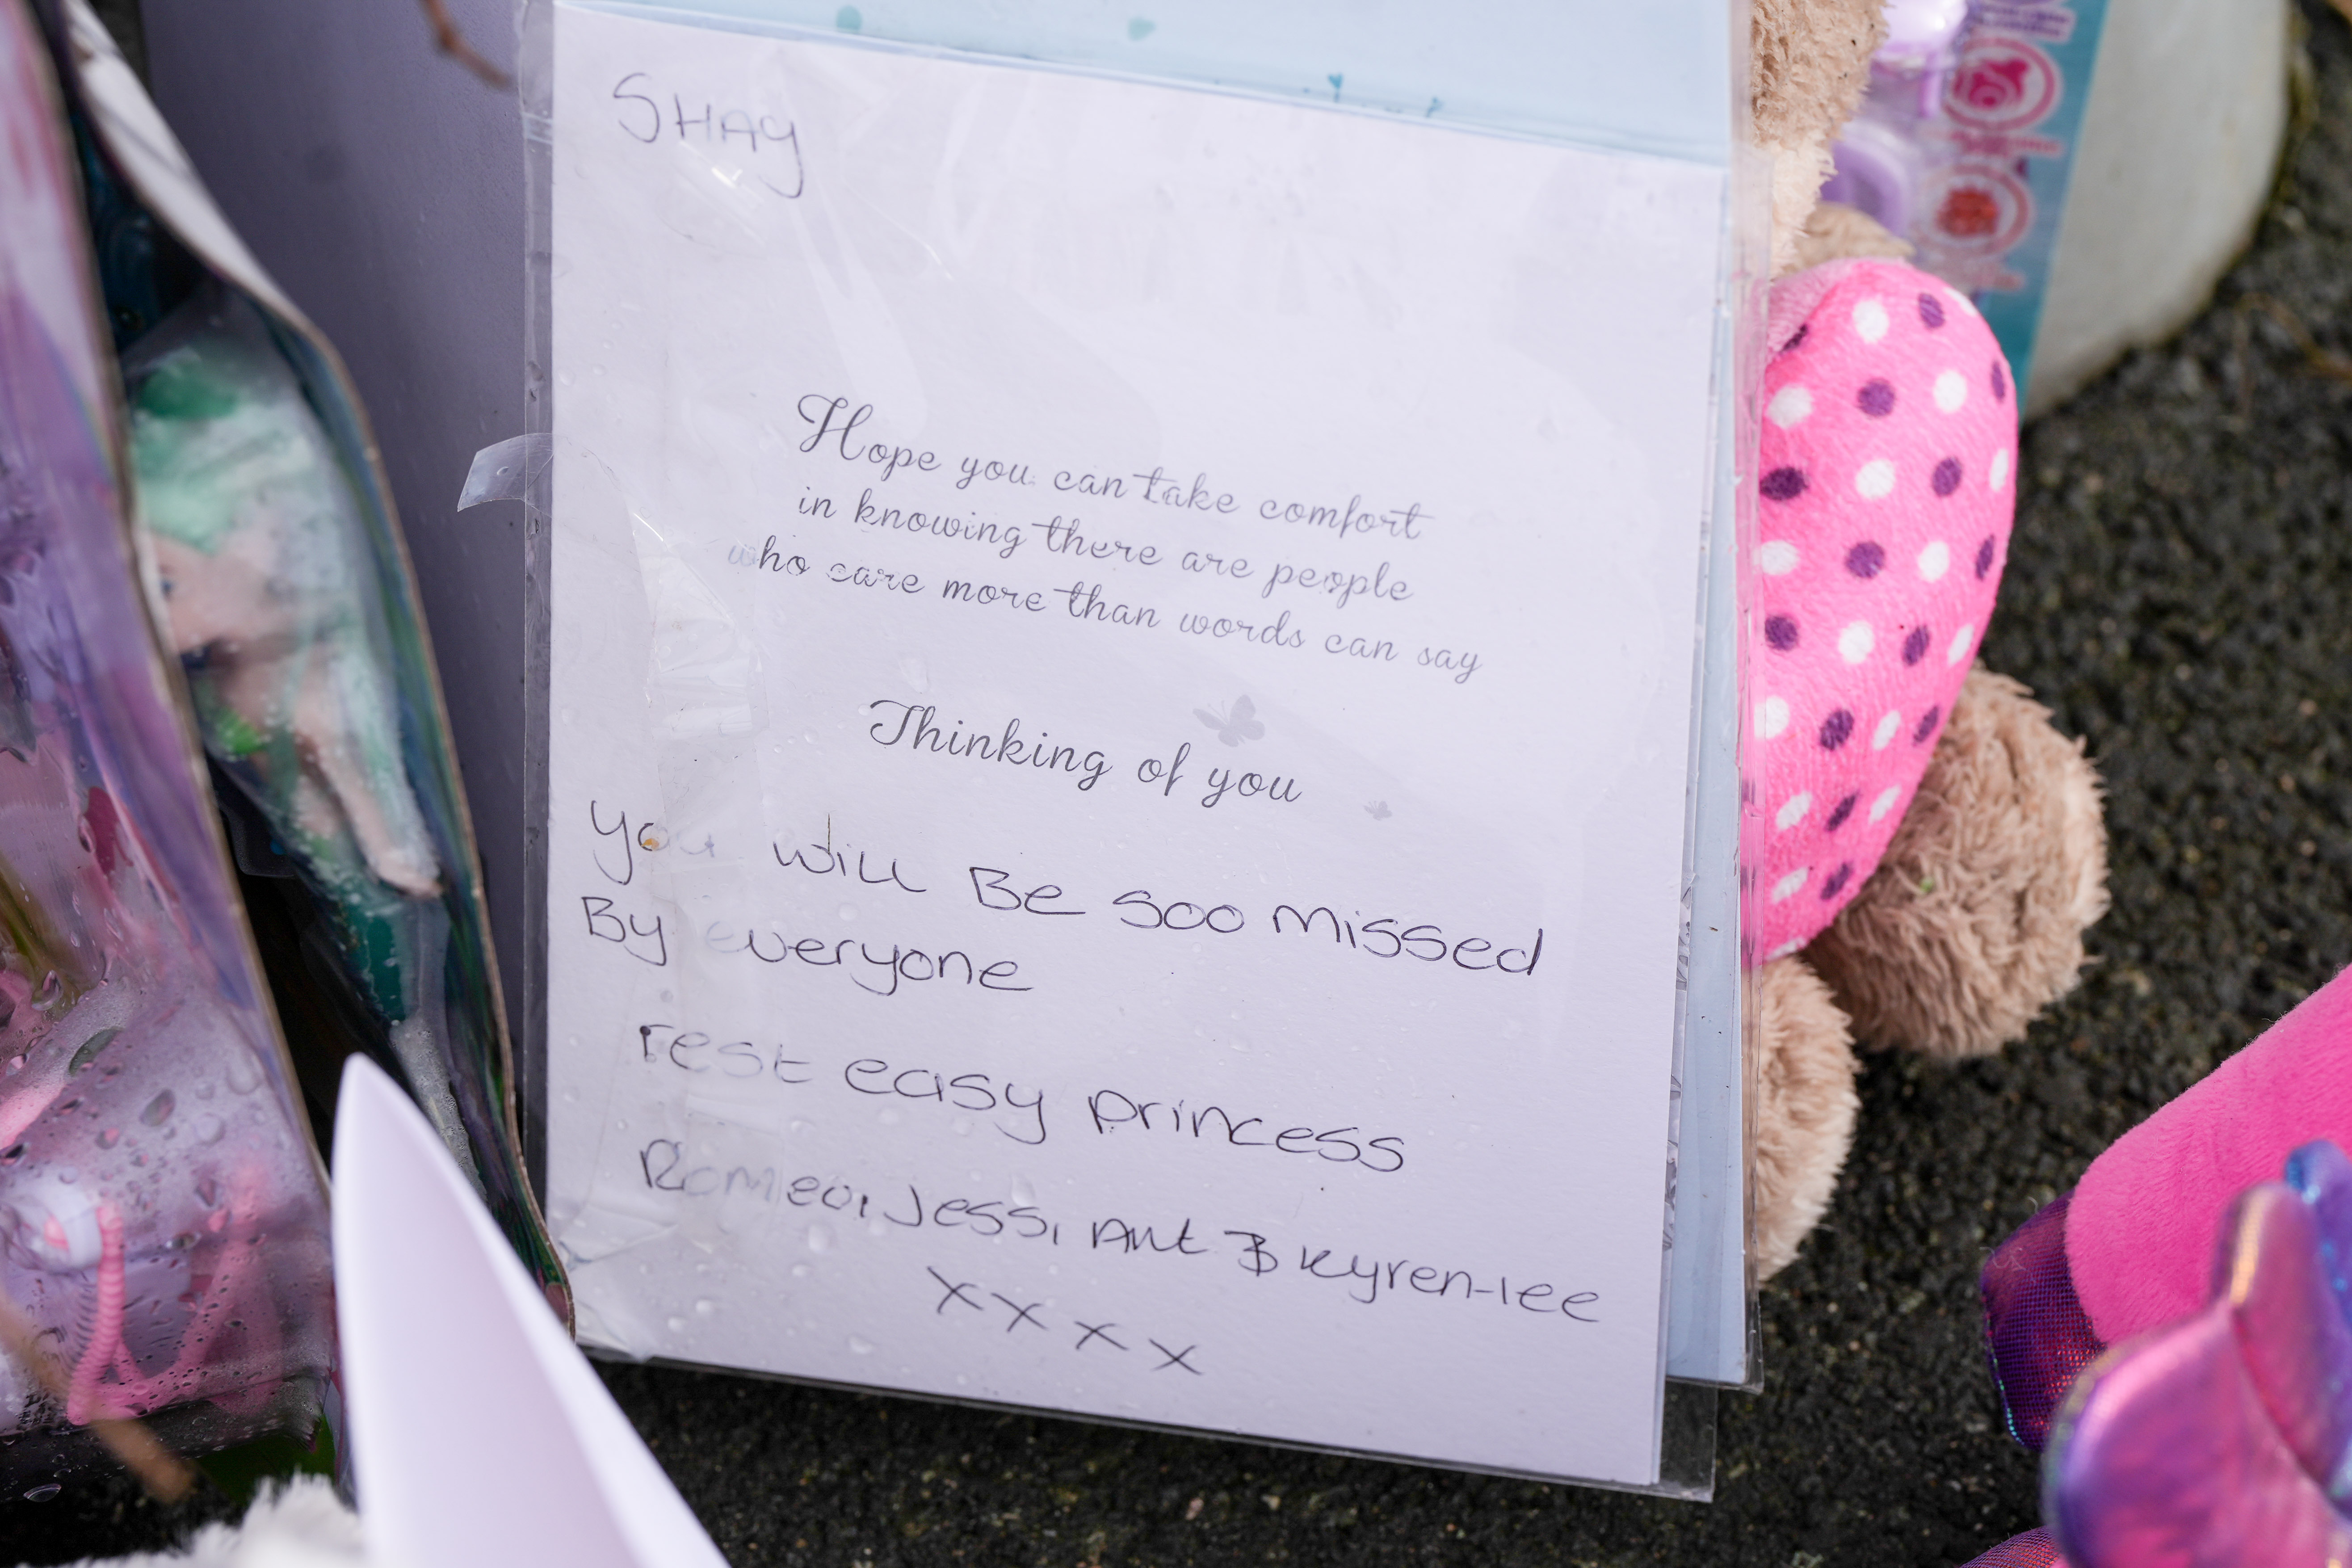 SHAY
Hope you can take comfort
in knowing there are people
who care more than words can say
Thinking of you
you will Be soo missed
By everyone
rest easy princess
Romeo, Jess, Ant & Kyren-lee
x x x x